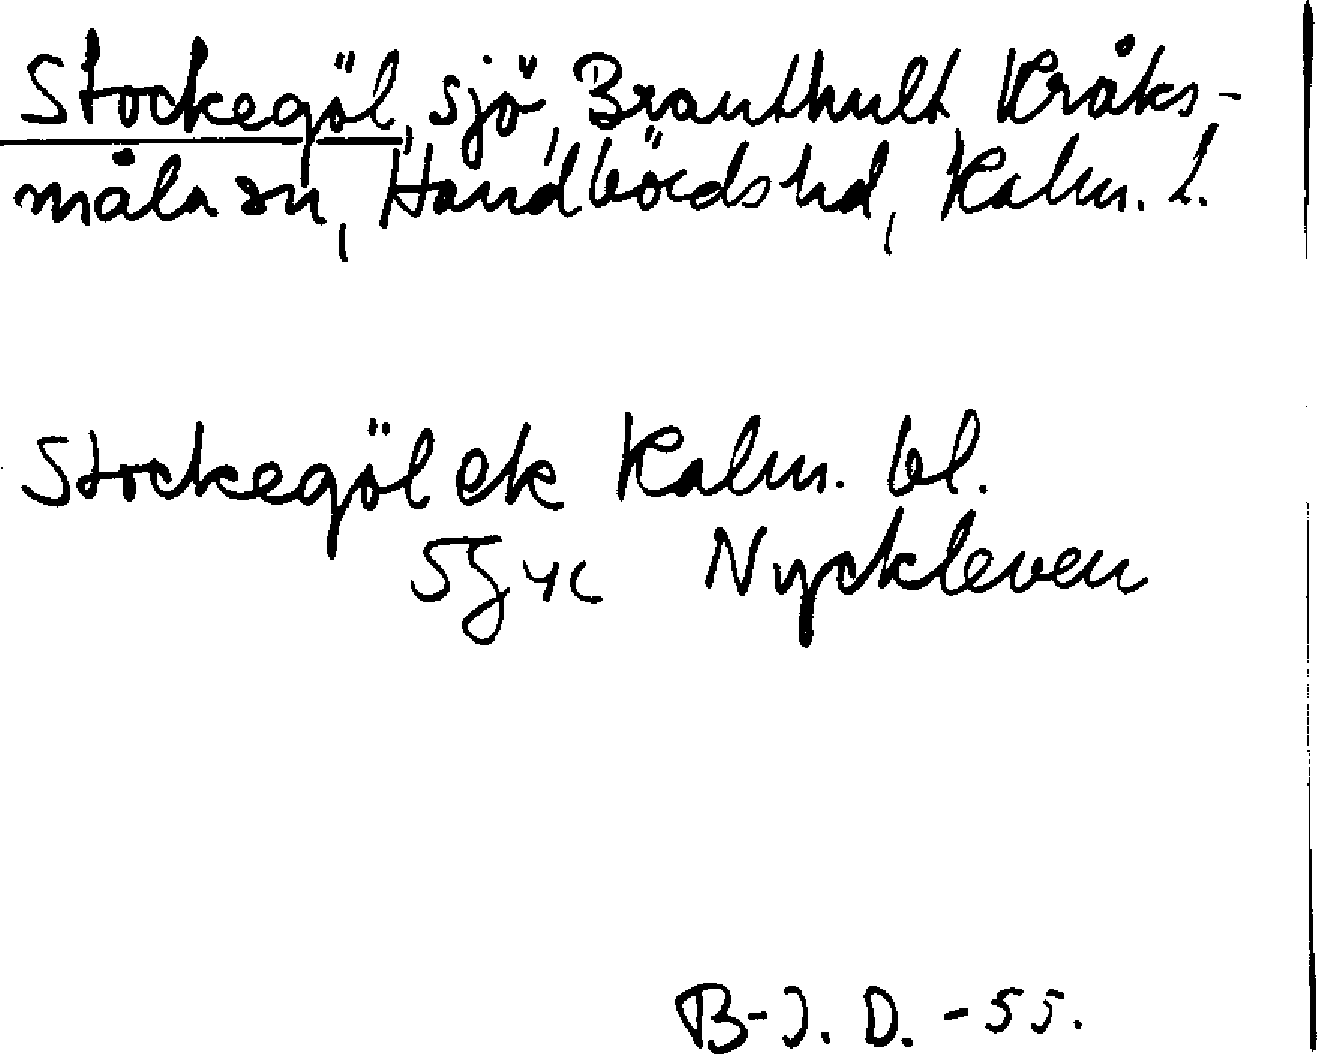 Stockegöl, sjö, Branthult Kråks-
måla sn, Handbörds hd, Kalm. l.
Stockegöl ek Kalm. bl.
5G 4c Nyckleven
B-J. D. -55.